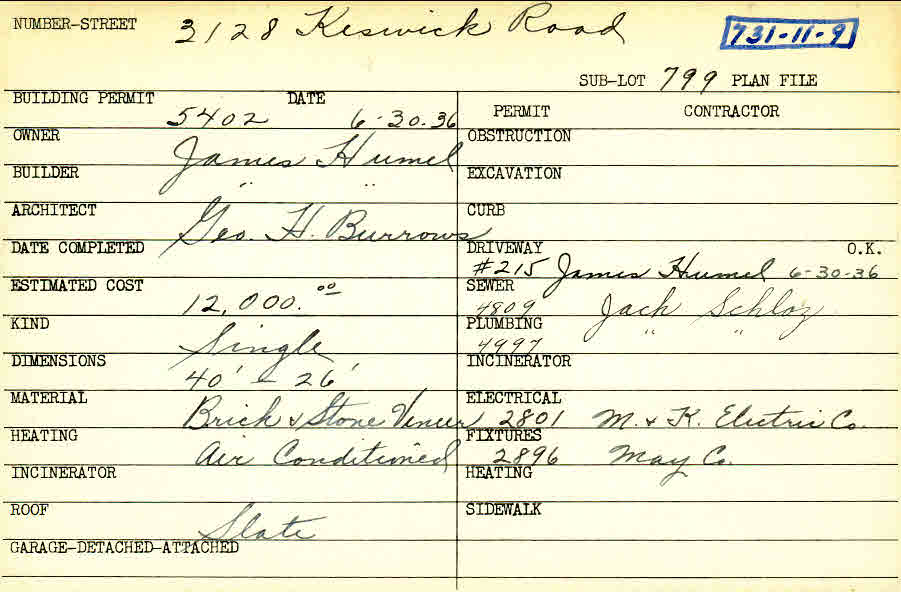 NUMBER-STREET 3128 Keswick Road 731-11-9
SUB-LOT 799 PLAN FILE
BUILDING PERMIT 5402 DATE 6-30-36
OWNER James Humel
BUILDER " "
ARCHITECT Geo. H. Burrows
DATE COMPLETED
ESTIMATED COST 12,000.00
KIND Single
DIMENSIONS 40' - 26'
MATERIAL Brick & Stone Veneer
HEATING Air Conditioned
INCINERATOR
ROOF Slate
GARAGE-DETACHED-ATTACHED
PERMIT CONTRACTOR
OBSTRUCTION
EXCAVATION
CURB
DRIVEWAY O.K.
#215 James Humel 6-30-36
SEWER
4809 Jack Schloz
PLUMBING " "
4997
INCINERATOR
ELECTRICAL
2801 M. & K. Electric Co.
FIXTURES
2896 May Co.
HEATING
SIDEWALK